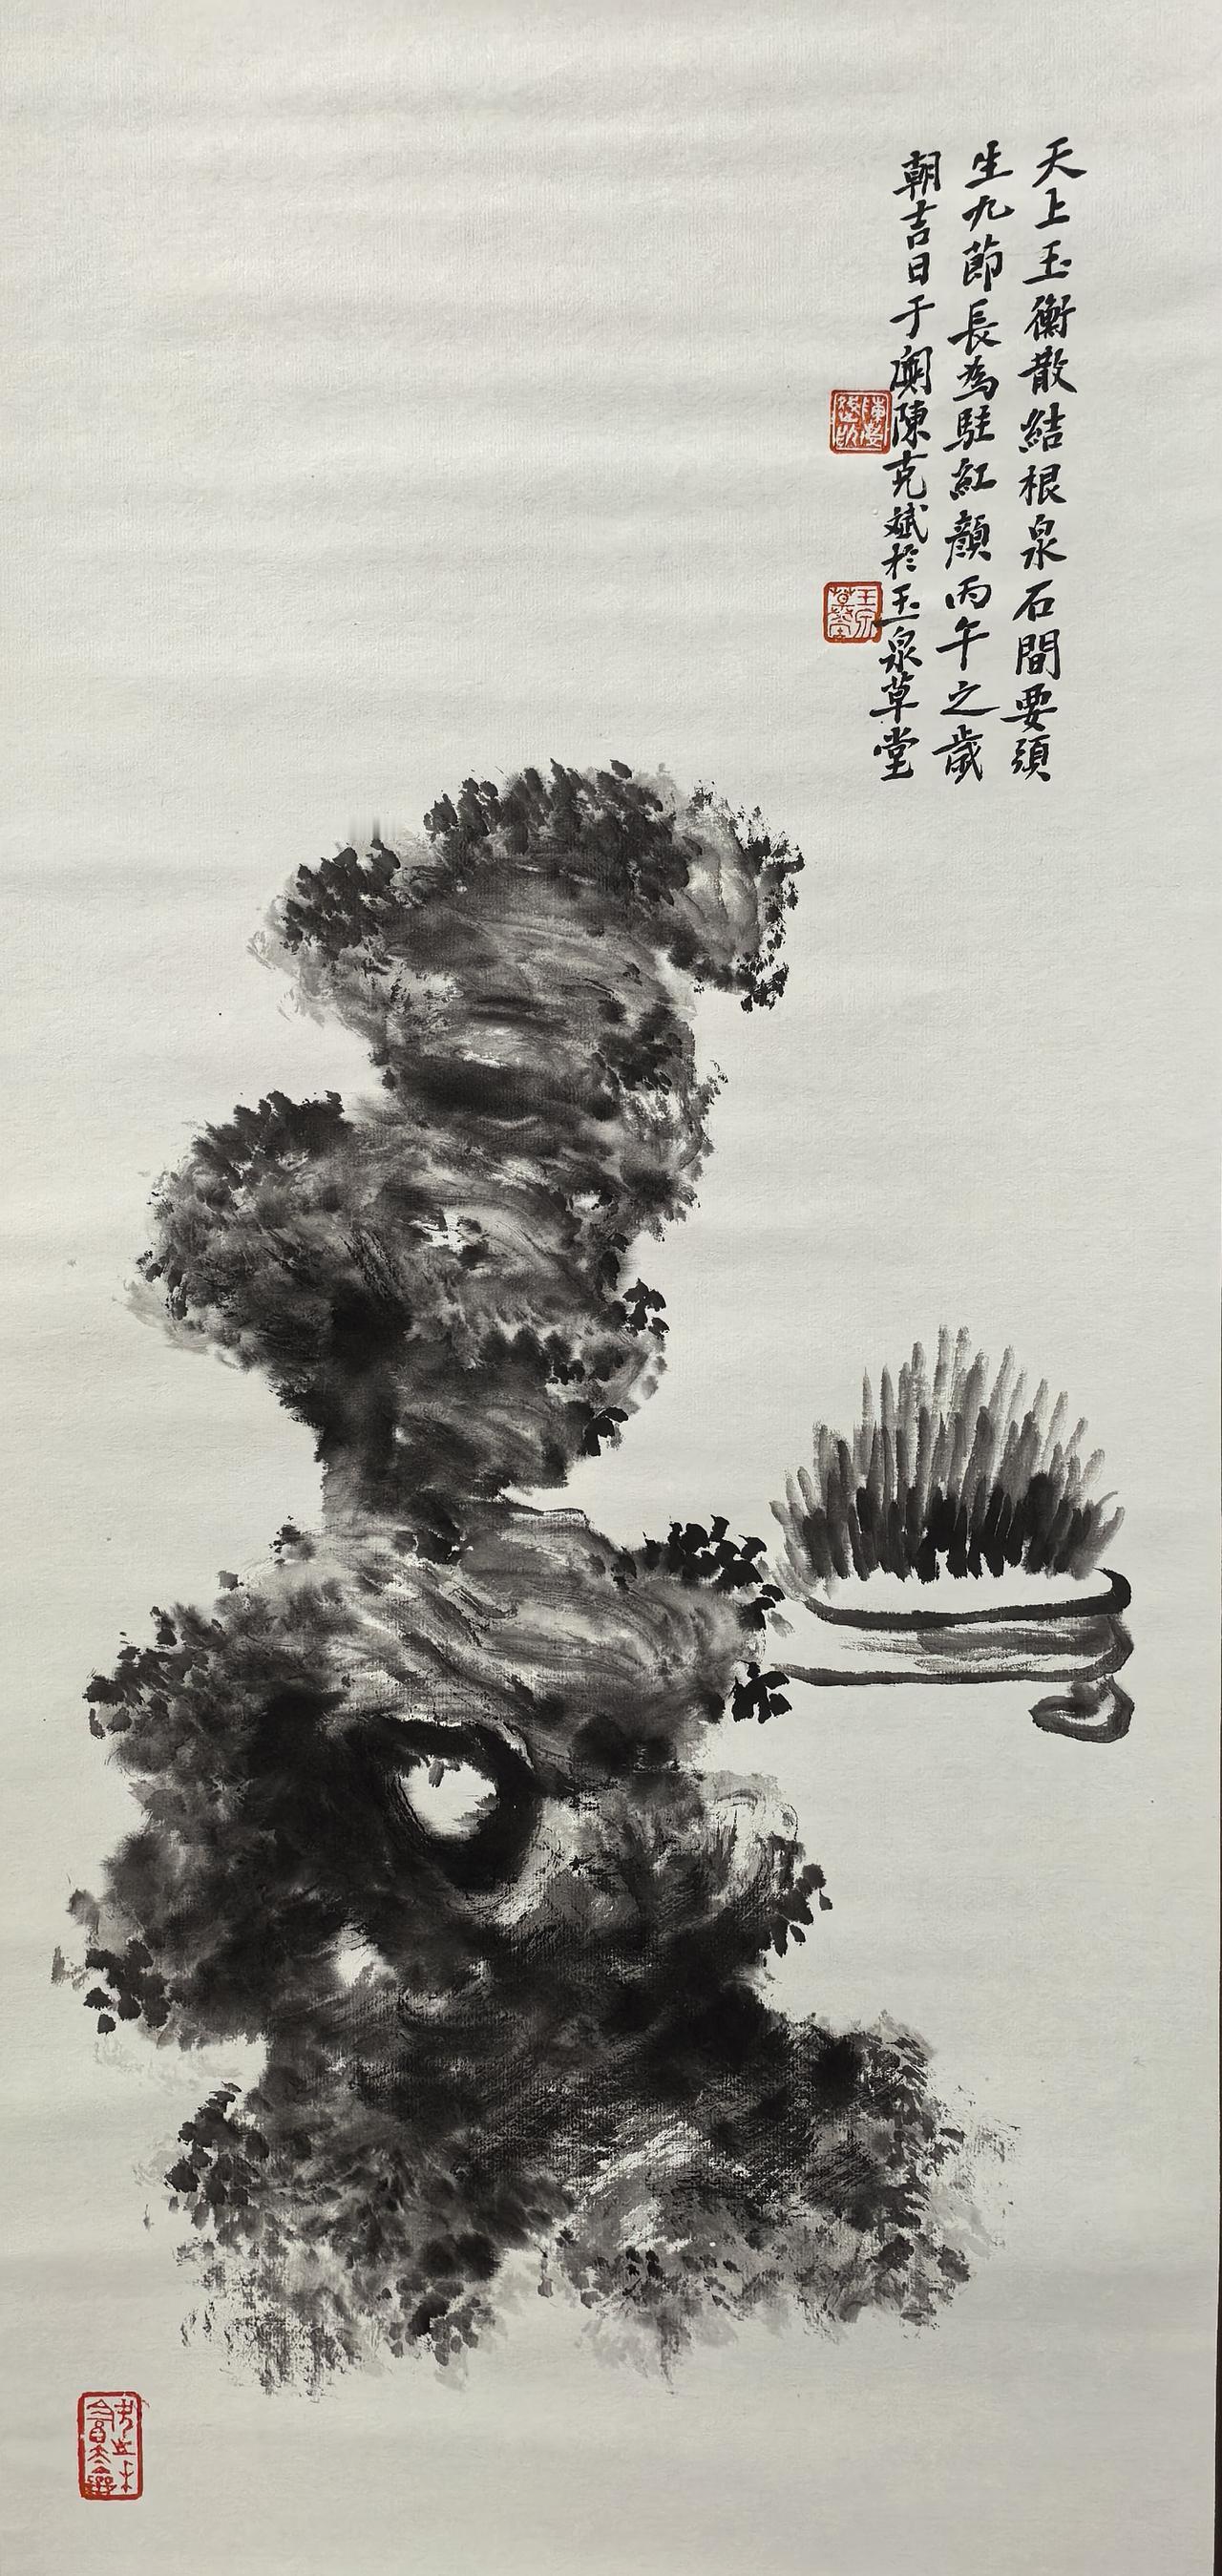 天上玉衡散結根泉石間要須
生九節長為駐紅顏丙午之歲
朝吉日于閩陳克斌於玉泉草堂